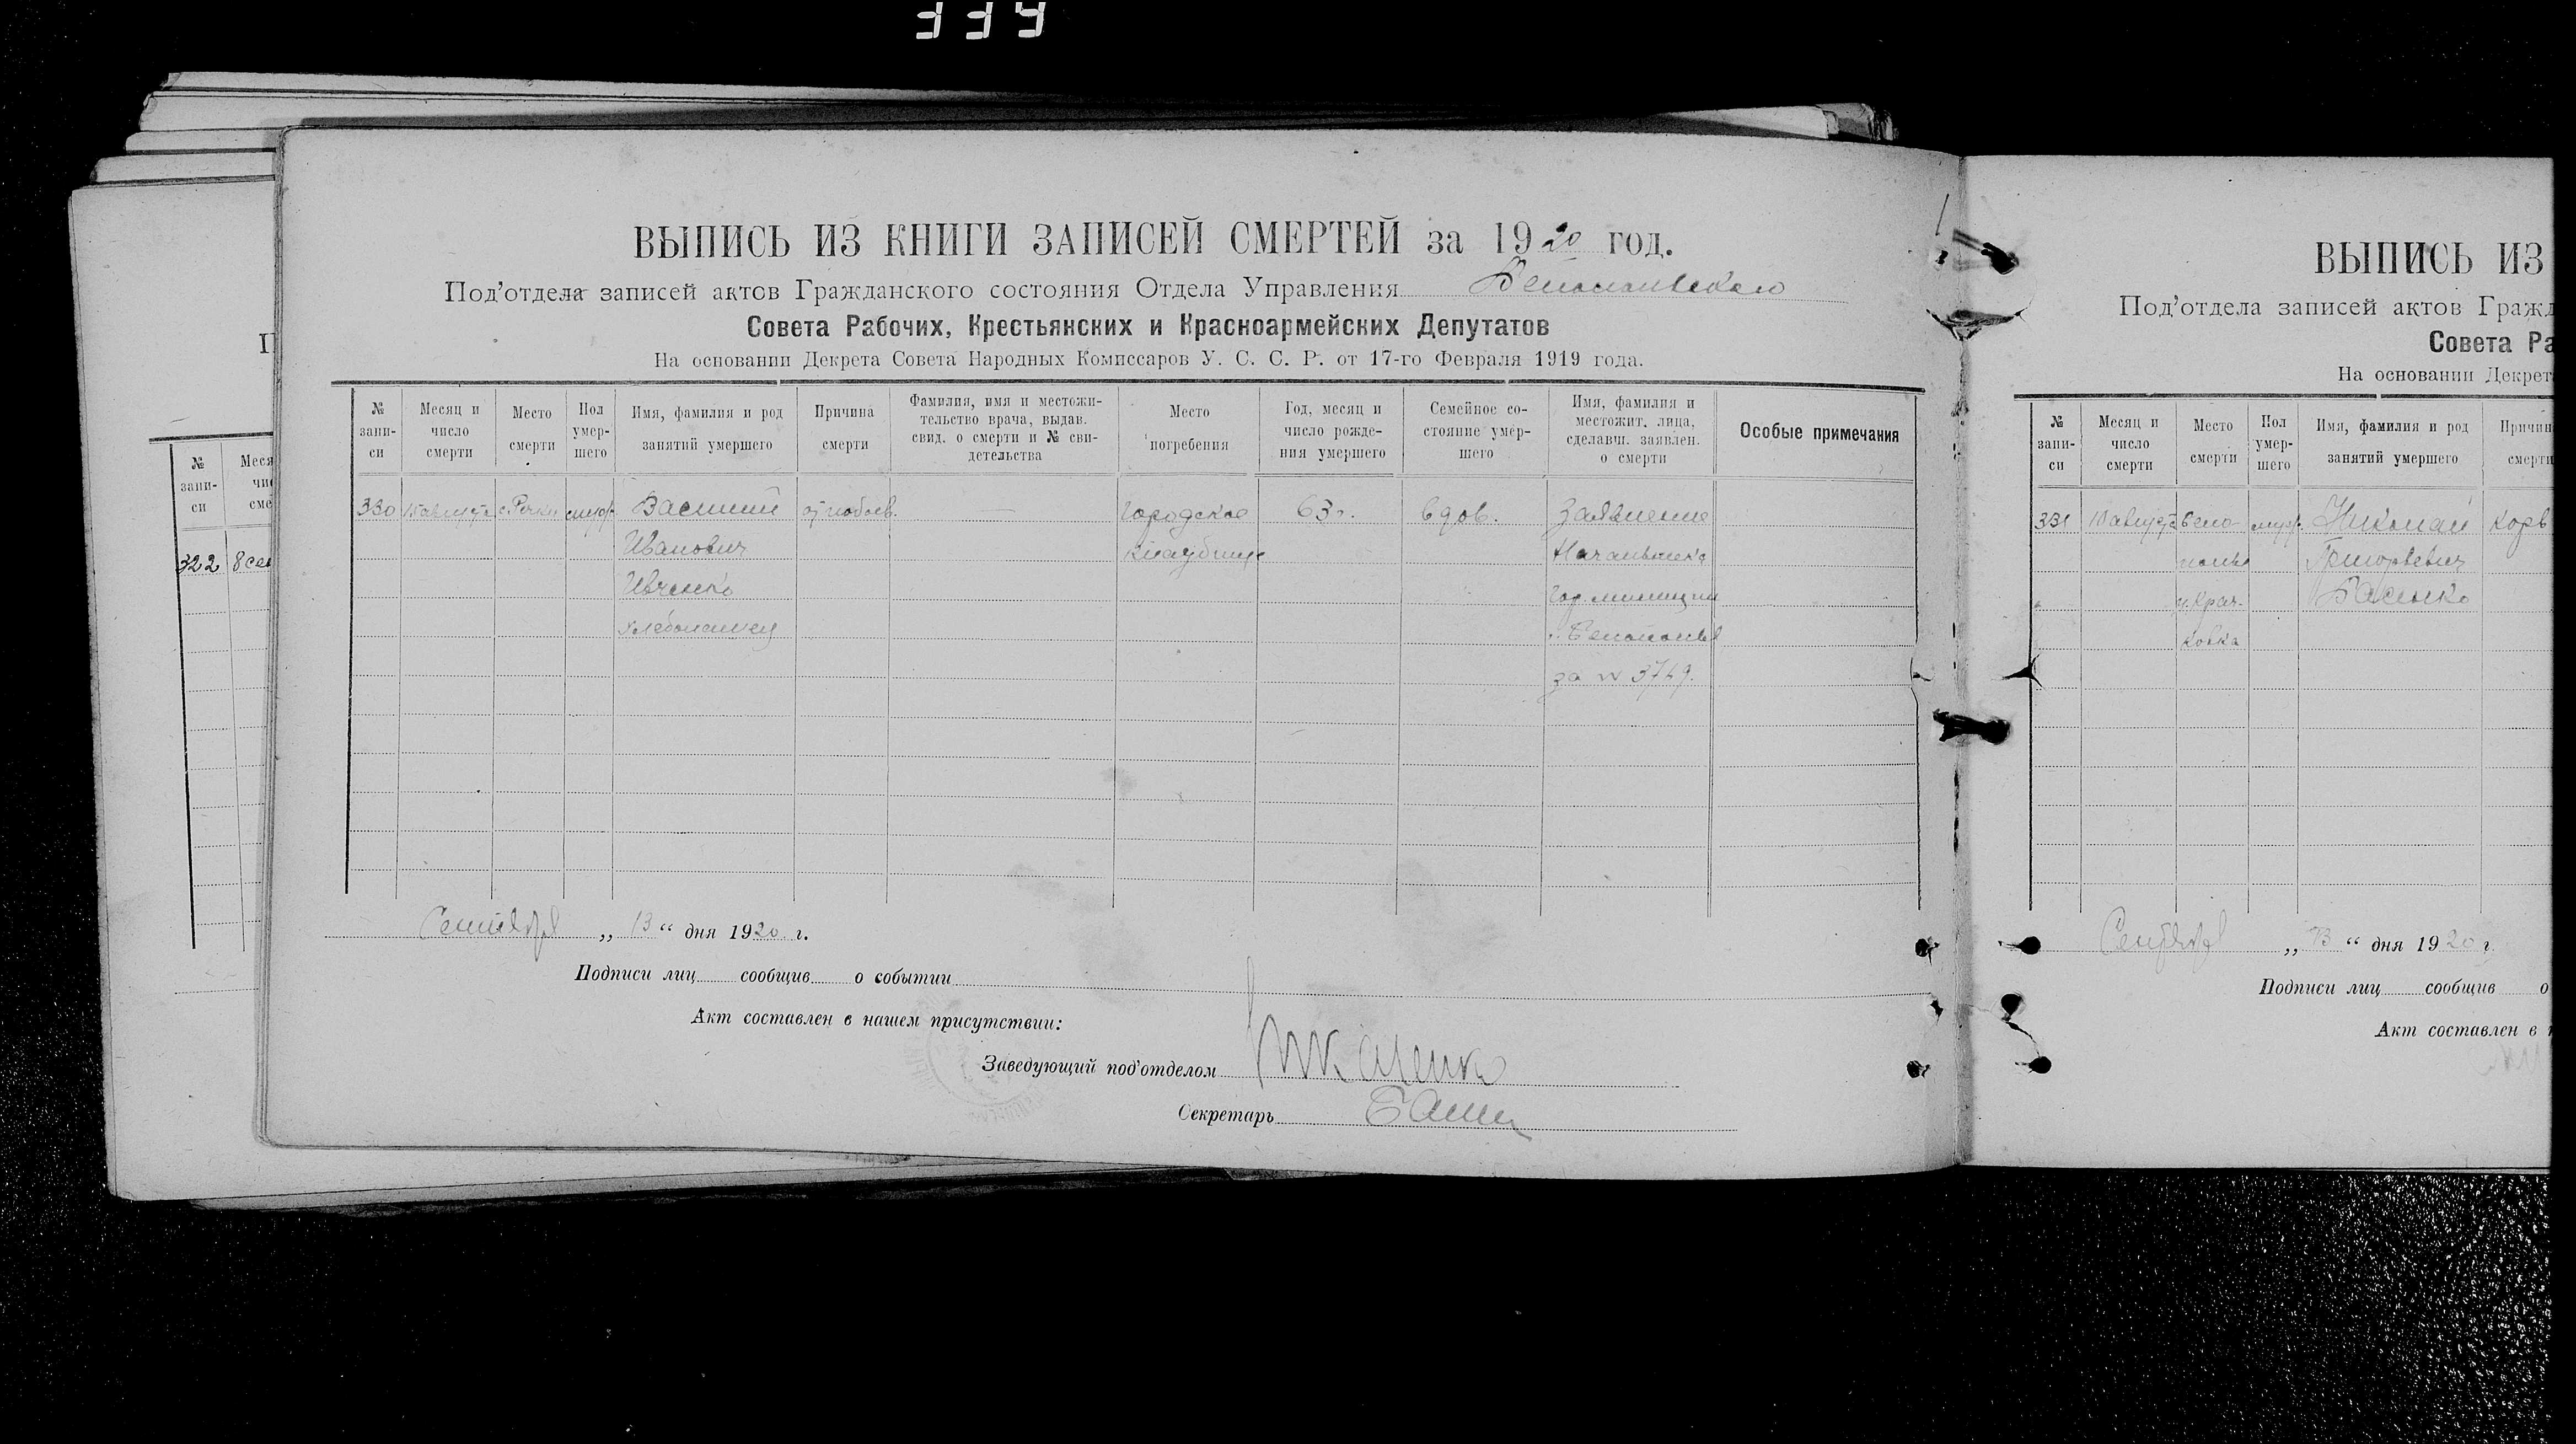 339
ВЫПИСЬ ИЗ КНИГИ ЗАПИСЕЙ СМЕРТЕЙ за 1920 год.
Под’отдела записей актов Гражданского состояния Отдела Управления Белопольского
Совета Рабочих, Крестьянских и Красноармейских Депутатов
На основании Декрета Совета Народных Комиссаров У. С. С. Р. от 17-го Февраля 1919 года.
№ записи
Месяц и число смерти
Место смерти
Пол умершего
Имя, фамилия и род занятий умершего
Причина смерти
Фамилия, имя и местожительство врача, выдав. свид. о смерти и № свидетельства
Место погребения
Год, месяц и число рождения умершего
Семейное состояние умершего
Имя, фамилия и местожит. лица, сделавш. заявлен. о смерти
Особые примечания
330 15 августа с. Речки муж. Василий от побоев. — Городское 63 г. вдов. Заявление
Иванович кладбище Начальника
Ивченко Гор. милиции
хлебопашец г. Белополья
за № 3749.
Сентября „ 13 “ дня 1920 г.
Подписи лиц сообщив о событии
Акт составлен в нашем присутствии:
Заведующий под’отделом
Секретарь
П
№ записи
Меся
чис
сме
322 8 сен
ВЫПИСЬ ИЗ
Под’отдела записей актов Гражд
Совета Ра
На основании Декрет
№ записи
Месяц и число смерти
Место смерти
Пол умершего
Имя, фамилия и род занятий умершего
Причин
смерти
331 10 августа Бело- муж. Николай
полье Григорьевич
Басенко
ковка
Сентября „ 13 “ дня 1920 г.
Подписи лиц сообщив о
Акт составлен в н